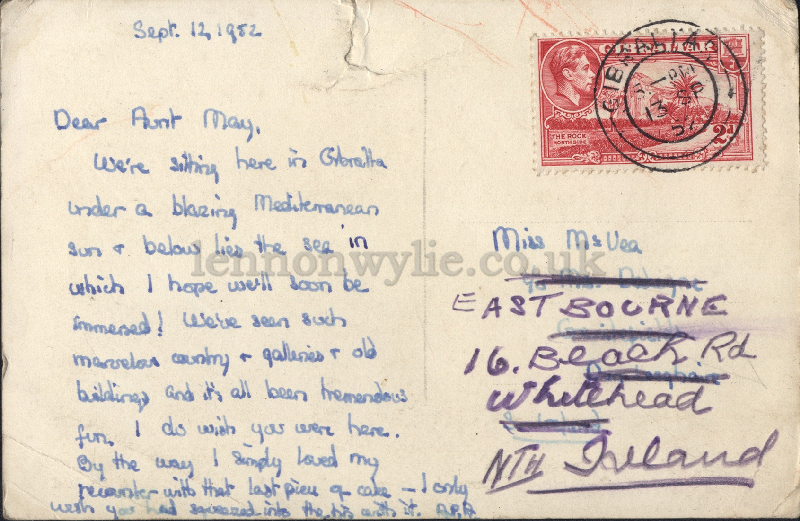 Sept. 12, 1952
Dear Aunt May,
We're sitting here in Gibralta
under a blazing Mediterranean
sun + below lies the sea in
which I hope we'll soon be
immersed! We've seen such
marvelous country + galleries + old
buildings and it's all been tremendous
fun. I do wish you were here.
By the way I simply loved my
with that last piece of cake – I only
wish you had squeezed into the with it.
GIBRALTAR
5 - PM
13 SP
52
THE ROCK
NORTH SIDE
2d
Miss McVea
EASTBOURNE
16. Beach Rd
Whitehead
NTH Ireland
lennonwylie.co.uk